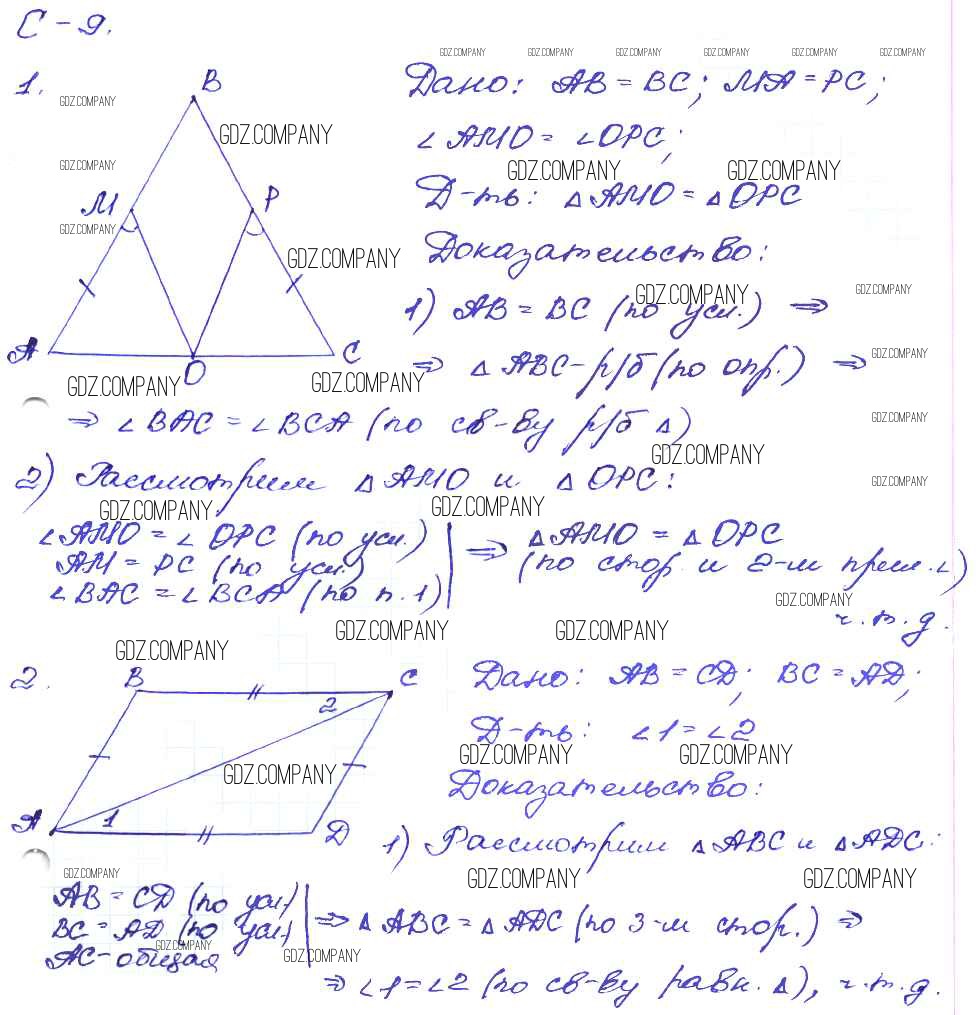 С-9.
GDZ.COMPANY GDZ.COMPANY GDZ.COMPANY GDZ.COMPANY GDZ.COMPANY GDZ.COMPANY
1. B Дано: AB = BC; MA = PC;
GDZ.COMPANY
GDZ.COMPANY
∠AMO = ∠OPC;
GDZ.COMPANY GDZ.COMPANY GDZ.COMPANY
M P Д-ть: △AMO = △OPC
GDZ.COMPANY
Доказательство:
GDZ.COMPANY
GDZ.COMPANY GDZ.COMPANY
1) AB = BC (по усл.) ⇒
A O C ⇒ △ABC-р/б (по опр.) ⇒
GDZ.COMPANY
GDZ.COMPANY GDZ.COMPANY
⇒ ∠BAC = ∠BCA (по св-ву р/б △)
GDZ.COMPANY
GDZ.COMPANY
2) Рассмотрим △AMO и △OPC:
GDZ.COMPANY
GDZ.COMPANY GDZ.COMPANY
∠AMO = ∠OPC (по усл.) ⇒ △AMO = △OPC
AM = PC (по усл.) (по стор. и 2-м прил. ∠)
∠BAC = ∠BCA (по п.1)
GDZ.COMPANY
ч.т.д.
GDZ.COMPANY GDZ.COMPANY GDZ.COMPANY
2. B C Дано: AB = CD; BC = AD;
2
Д-ть: ∠1=∠2
GDZ.COMPANY GDZ.COMPANY GDZ.COMPANY
Доказательство:
A 1 D
1) Рассмотрим △ABC и △ADC:
GDZ.COMPANY GDZ.COMPANY GDZ.COMPANY
AB = CD (по усл)
BC = AD (по усл) ⇒ △ABC = △ADC (по 3-м стор.) ⇒
GDZ.COMPANY GDZ.COMPANY
AC-общая
⇒ ∠1=∠2 (по св-ву равн. △), ч.т.д.